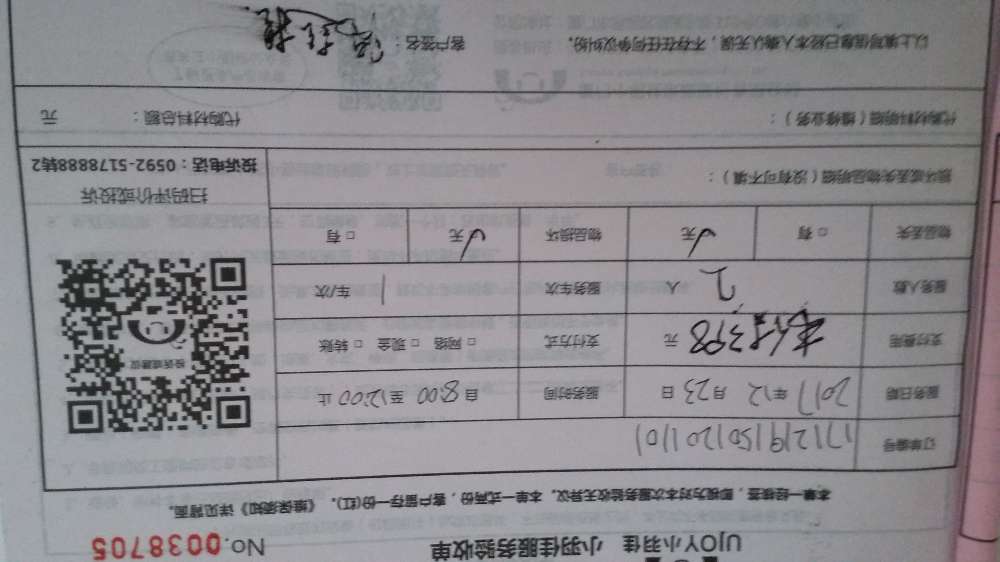 UJOY小羽佳 小羽佳服务验收单 No.0038705
本单一经签署，即视为对本次服务验收无异议。本单一式两份，客户留存一份(红)。《维保须知》详见背面。
订单编号 171219150120110
服务日期 2017 年 12 月 23 日 服务时间 自 8:00 至 12:00 止
支付费用 398 元 支付方式 □ 网络 □ 现金 □ 转账
服务人数 2 人 服务车次 1 车/次
物品丢失 □ 有 √无 物品损坏 √无 □ 有
投诉或建议
损坏或丢失物品明细（没有可不填）：
扫码评价或投诉
投诉电话：0592-5178888转2
代购材料明细（维修业务）： 代购材料总额： 元
以上填写信息已经本人确认无误，不存在任何争议纠纷。 客户签名：